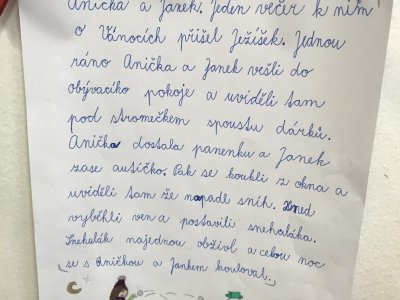 Anička a Janek. Jeden večer k nim
o Vánocích přišel Ježíšek. Jednou
ráno Anička a Janek vešli do
obývacího pokoje a uviděli tam
pod stromečkem spoustu dárků.
Anička dostala panenku a Janek
zase autíčko. Pak se koukli z okna a
uviděli tam že napadl sníh. Hned
vyběhli ven a postavili snehuláka.
Snehulák najednou obživl a celou noc
se s Aničkou a Jankem kouloval.